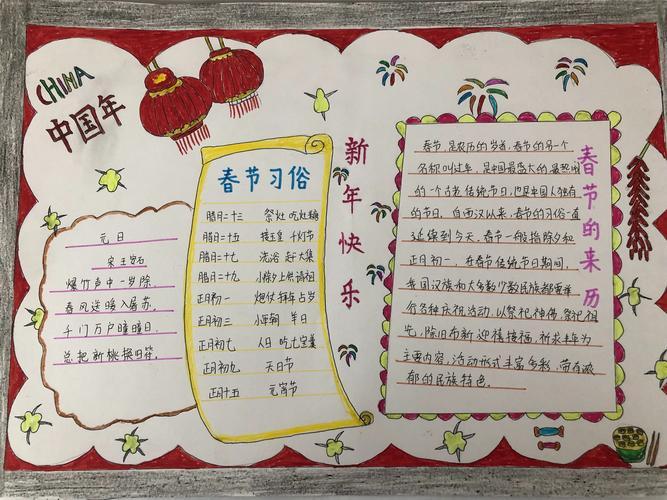 CHINA
中国年
元日
宋 王安石
爆竹声中一岁除,
春风送暖入屠苏。
千门万户曈曈日,
总把新桃换旧符。
春节习俗
腊月二十三 祭灶 吃灶糖
腊月二十五 接玉皇 千灯节
腊月二十七 洗浴 赶大集
腊月二十九 小除夕上供请祖
正月初一 炮仗 拜年 占岁
正月初三 小年朝 羊日
正月初七 人日 吃七宝羹
正月初九 天日节
正月十五 元宵节
新年快乐
春节的来历
春节,是农历的岁首,春节的另一个
名称叫过年,是中国最盛大的最热闹
的一个古老传统节日,也是中国人独有
的节日,自西汉以来,春节的习俗一直
延续到今天,春节一般指除夕和
正月初一,在春节传统节日期间,
我国汉族和大多数少数民族都要举
行各种庆祝活动,以祭祀神佛,祭祀祖
先,除旧布新迎禧接福,祈求丰年为
主要内容,活动形式丰富多彩,带有浓
郁的民族特色。